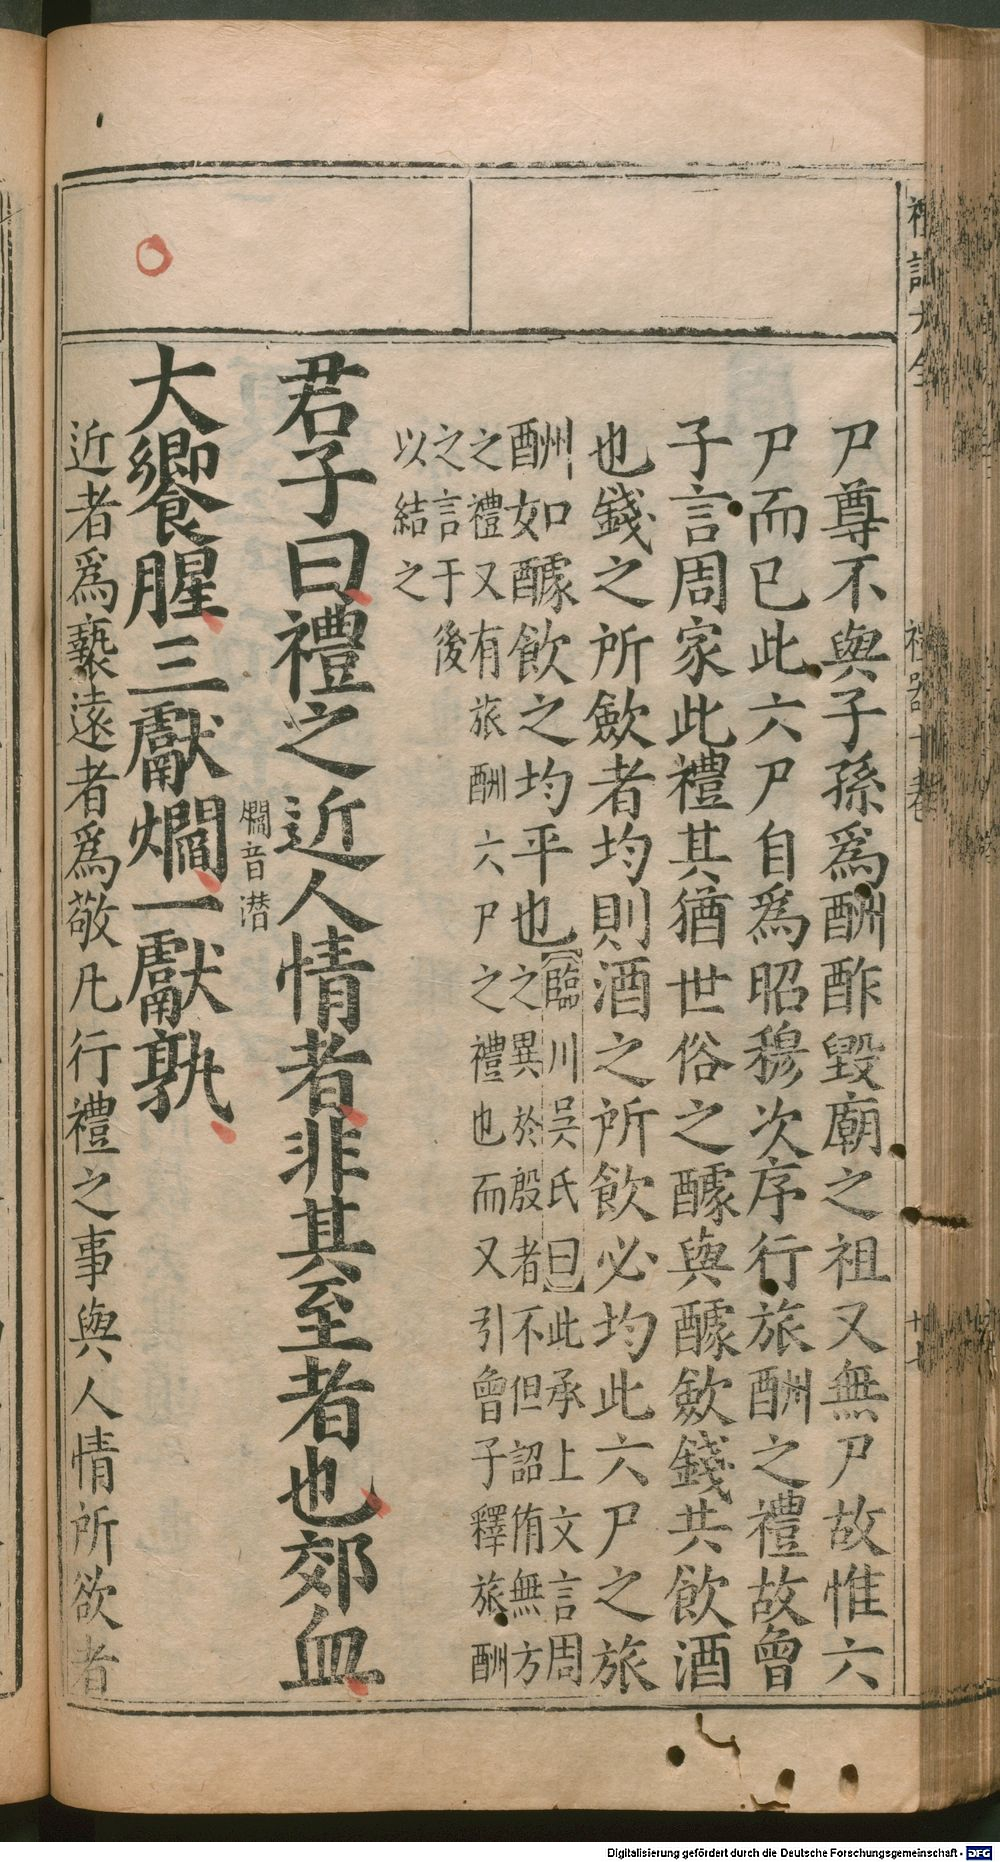 禮記大全
禮器十卷
廿七
尸尊不與子孫爲酬酢毀廟之祖又無尸故惟六
尸而已此六尸自爲昭穆次序行旅酬之禮故曾
子言周家此禮其猶世俗之醵與醵斂錢共飲酒
也錢之所斂者均則酒之所飲必均此六尸之旅
酬如醵飲之均平也【臨川吳氏曰】此承上文言周
之異於殷者不但詔侑無方
之禮又有旅酬六尸之禮也而又引曾子釋旅酬
之言于後
以結之
君子曰禮之近人情者非其至者也郊血
爓音潛
大饗腥三獻爓一獻孰
近者爲褻遠者爲敬凡行禮之事與人情所欲者
Digitalisierung gefördert durch die Deutsche Forschungsgemeinschaft - DFG